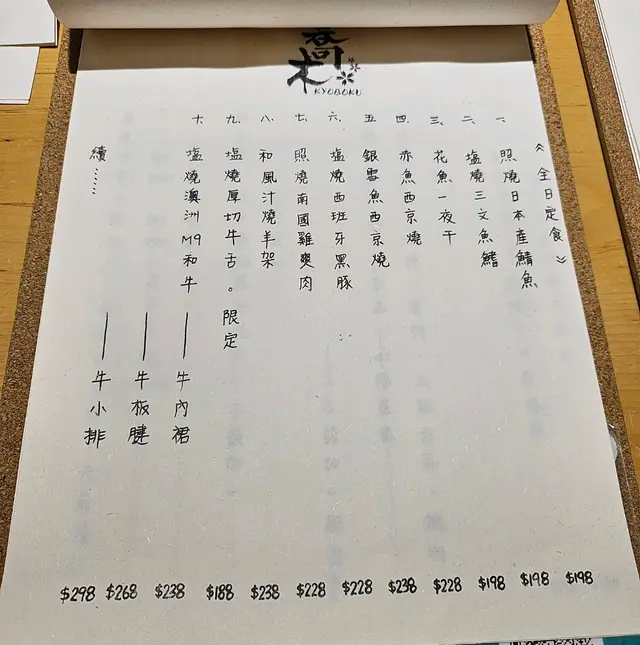 喬木
KYOBOKU
《全日定食》
一、照燒日本產鯖魚 $198
二、塩燒三文魚鰭 $198
三、花魚一夜干 $198
四、赤魚西京燒 $228
五、銀雪魚西京燒 $238
六、塩燒西班牙黑豚 $228
七、照燒南國雞爽肉 $228
八、和風汁燒羊架 $238
九、塩燒厚切牛舌。限定 $188
十、塩燒澳洲M9和牛——牛內裙 $238
——牛板腱 $268
——牛小排 $298
續……